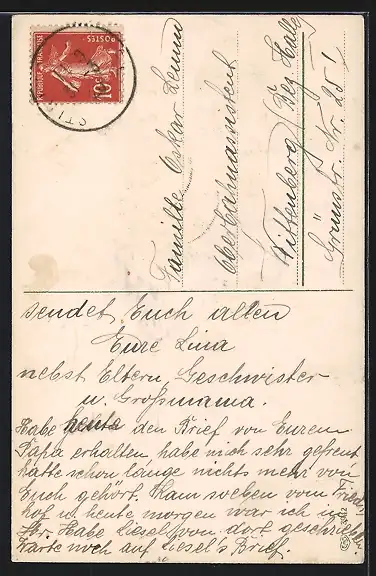 Familie Oskar
Oberbahnassistent
Wittenberg / Bez. Halle
Grünstr. Nr. 25 !
REPUBLIQUE FRANÇAISE
POSTES
10c
sendet Euch allen
Eure Lina
nebst Eltern, Geschwister
u. Großmama.
Habe heute den Brief von Eurem
Papa erhalten, habe mich sehr gefreut
hatte schon lange nichts mehr von
Euch gehört. Kam soeben vom Fried-
hof u. heute morgen war ich in
Str. Habe Liesel von dort geschrieben
Karte noch auf Liesel's Brief.